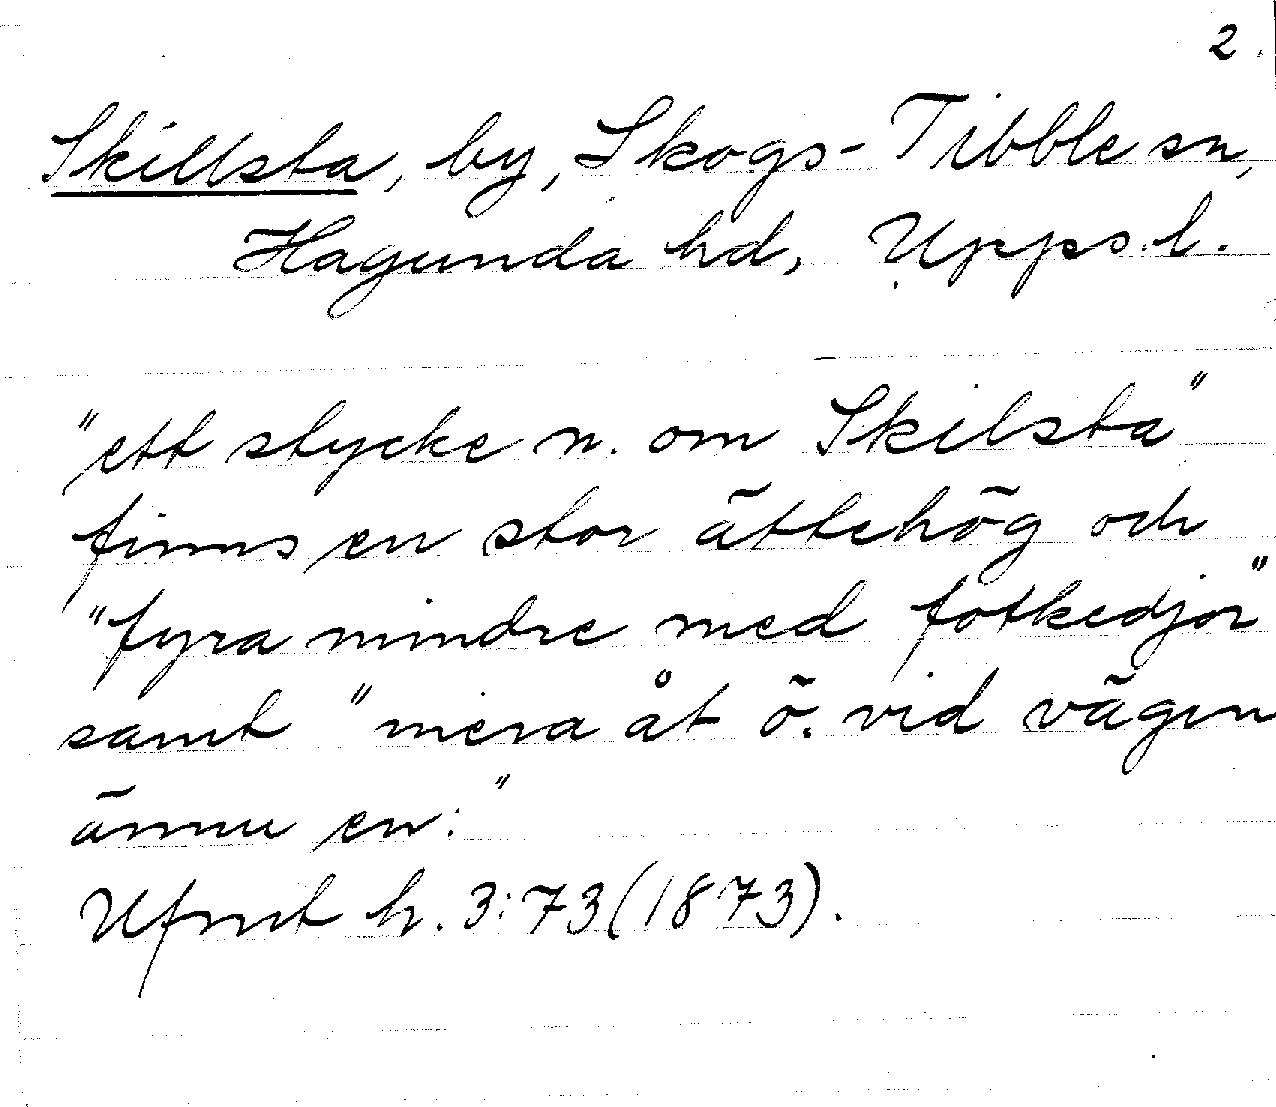 2.
Skillsta, by, Skogs-Tibble sn,
Hagunda hd, Upps.l.
"ett stycke n. om Skilsta"
finns en stor ättehög och
"fyra mindre med fotkedjor"
samt "mera åt ö. vid vägen
ännu en."
Ufmt h. 3:73 (1873).